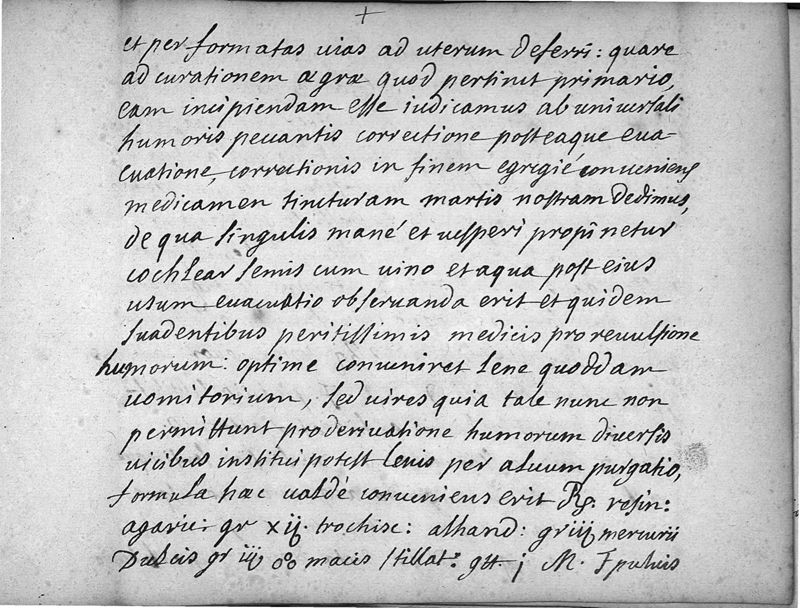 et per formatas vias ad uterum deferri: quare
ad curationem ægræ quod pertinet primario,
eam incipiendam esse iudicamus ab universali
humoris peccantis correctione posteaque eva-
cuatione, correctionis in finem egregié conveniens
medicamen tincturam martis nostram dedimus,
de qua singulis mané et vesperi propinetur
cochlear semis cum vino et aqua post eius
usum evacuatio observanda erit et quidem
suadentibus peritissimis medicis pro revulsione
humorum: optime conveniret lene quoddam
vomitorium, sed vires quia tale nunc non
permittunt pro derivatione humorum diversis
vicibus institui potest levis per alvum purgatio,
formula hæc valdé conveniens erit ℞. resin:
agarici gr xij. trochisc: alhand: gr iij mercurii
Dulcis gr iij macis stillat: gtt. j M. F pulvis